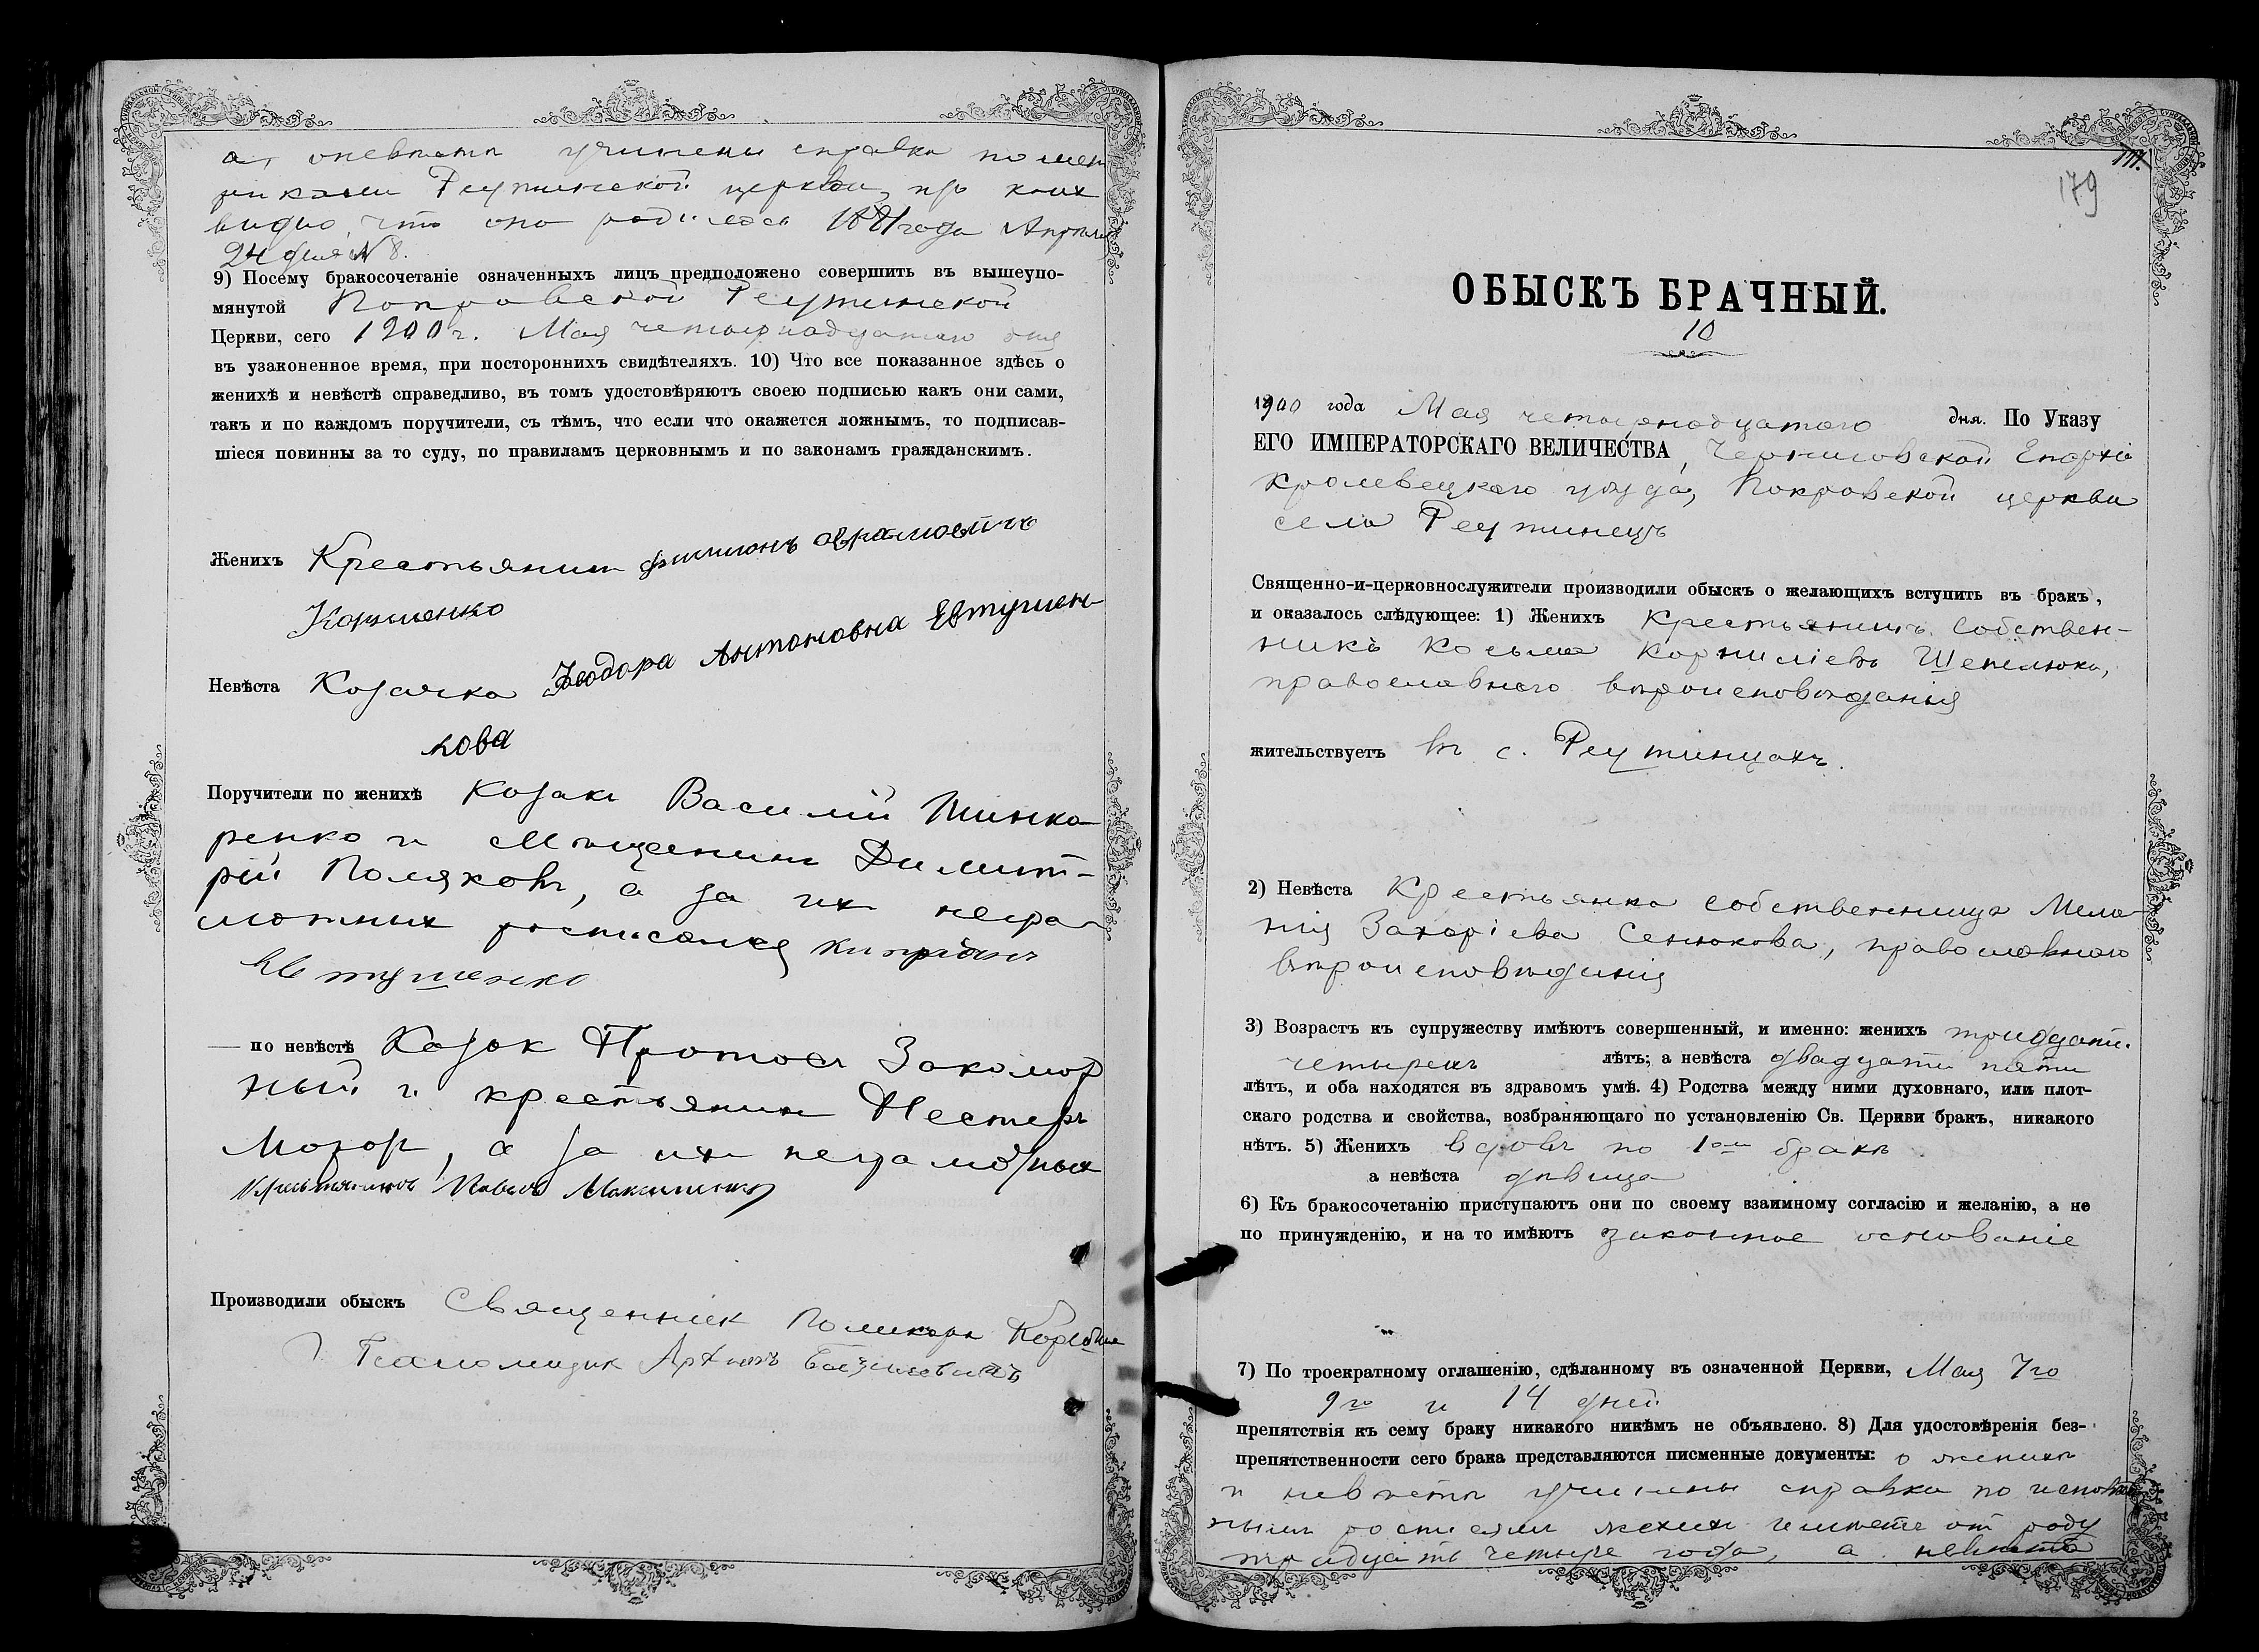 а, о невѣстѣ учинены справки по мет
рикамъ Реутинской церкви, изъ коихъ
видно, что она родилась 1881 года Апрѣля
24 дня № 8.
9) Посему бракосочетаніе означенныхъ лицъ предположено совершить въ вышеупо-
мянутой Покровской Реутинской
Церкви, сего 1900 г. Мая четырнадцатаго дня
въ узаконенное время, при постороннихъ свидѣтеляхъ. 10) Что все показанное здѣсь о
женихѣ и невѣстѣ справедливо, въ томъ удостовѣряютъ своею подписью какъ они сами,
такъ и по каждомъ поручители, съ тѣмъ, что если что окажется ложнымъ, то подписав-
шіеся повинны за то суду, по правиламъ церковнымъ и по законамъ гражданскимъ.
Женихъ Крестьянинъ Филимонъ Аврамовичъ
Невѣста Козачка Феодора Антоновна Евтушен
кова
Поручители по женихѣ Козакъ Василій Шинка
ренко и Мѣщанинъ Димит-
рій Поляковъ, а за ихъ негра
мотныхъ росписался Кипріянъ
Евтушенко
— по невѣстѣ Козак Протас Закомор
ный и крестьянин Нестеръ
Мохор, а за ихъ неграмотных
Крестьянинъ Павелъ Максименко
Производили обыскъ Священник Поликарп
Псаломщик
179
ОБЫСКЪ БРАЧНЫЙ.
10
1900 года Мая четырнадцатаго дня. По Указу
ЕГО ИМПЕРАТОРСКАГО ВЕЛИЧЕСТВА, Черниговской Епархіи
Кролевецкаго уѣзда, Покровской церкви
села Реутинецъ
Священно-и-церковнослужители производили обыскъ о желающихъ вступить въ бракъ,
и оказалось слѣдующее: 1) Женихъ Крестьянинъ Собствен-
никъ Косьма Корниліевъ Шепелюкъ,
православнаго вѣроисповѣданія
жительствуетъ въ с. Реутинцахъ.
2) Невѣста Крестьянка собственница Мела
нія Захаріева Сенюкова, православнаго
вѣроисповѣданія
3) Возрастъ къ супружеству имѣютъ совершенный, и именно: женихъ тридцати
четырехъ лѣтъ; а невѣста двадцати пяти
лѣтъ, и оба находятся въ здравомъ умѣ. 4) Родства между ними духовнаго, или плот-
скаго родства и свойства, возбраняющаго по установленію Св. Церкви бракъ, никакого
нѣтъ. 5) Женихъ вдовъ по 1ом бракѣ
а невѣста дѣвица
6) Къ бракосочетанію приступаютъ они по своему взаимному согласію и желанію, а не
по принужденію, и на то имѣютъ законное основаніе
7) По троекратному оглашенію, сдѣланному въ означенной Церкви, Мая 7го
9го и 14 дней
препятствія къ сему браку никакого никѣмъ не объявлено. 8) Для удостовѣренія без-
препятственности сего брака представляются писменные документы: о женихѣ
и невѣстѣ учинены справки по исповѣд
нымъ росписямъ жених имѣетъ от роду
тридцать четыре года, а невѣста